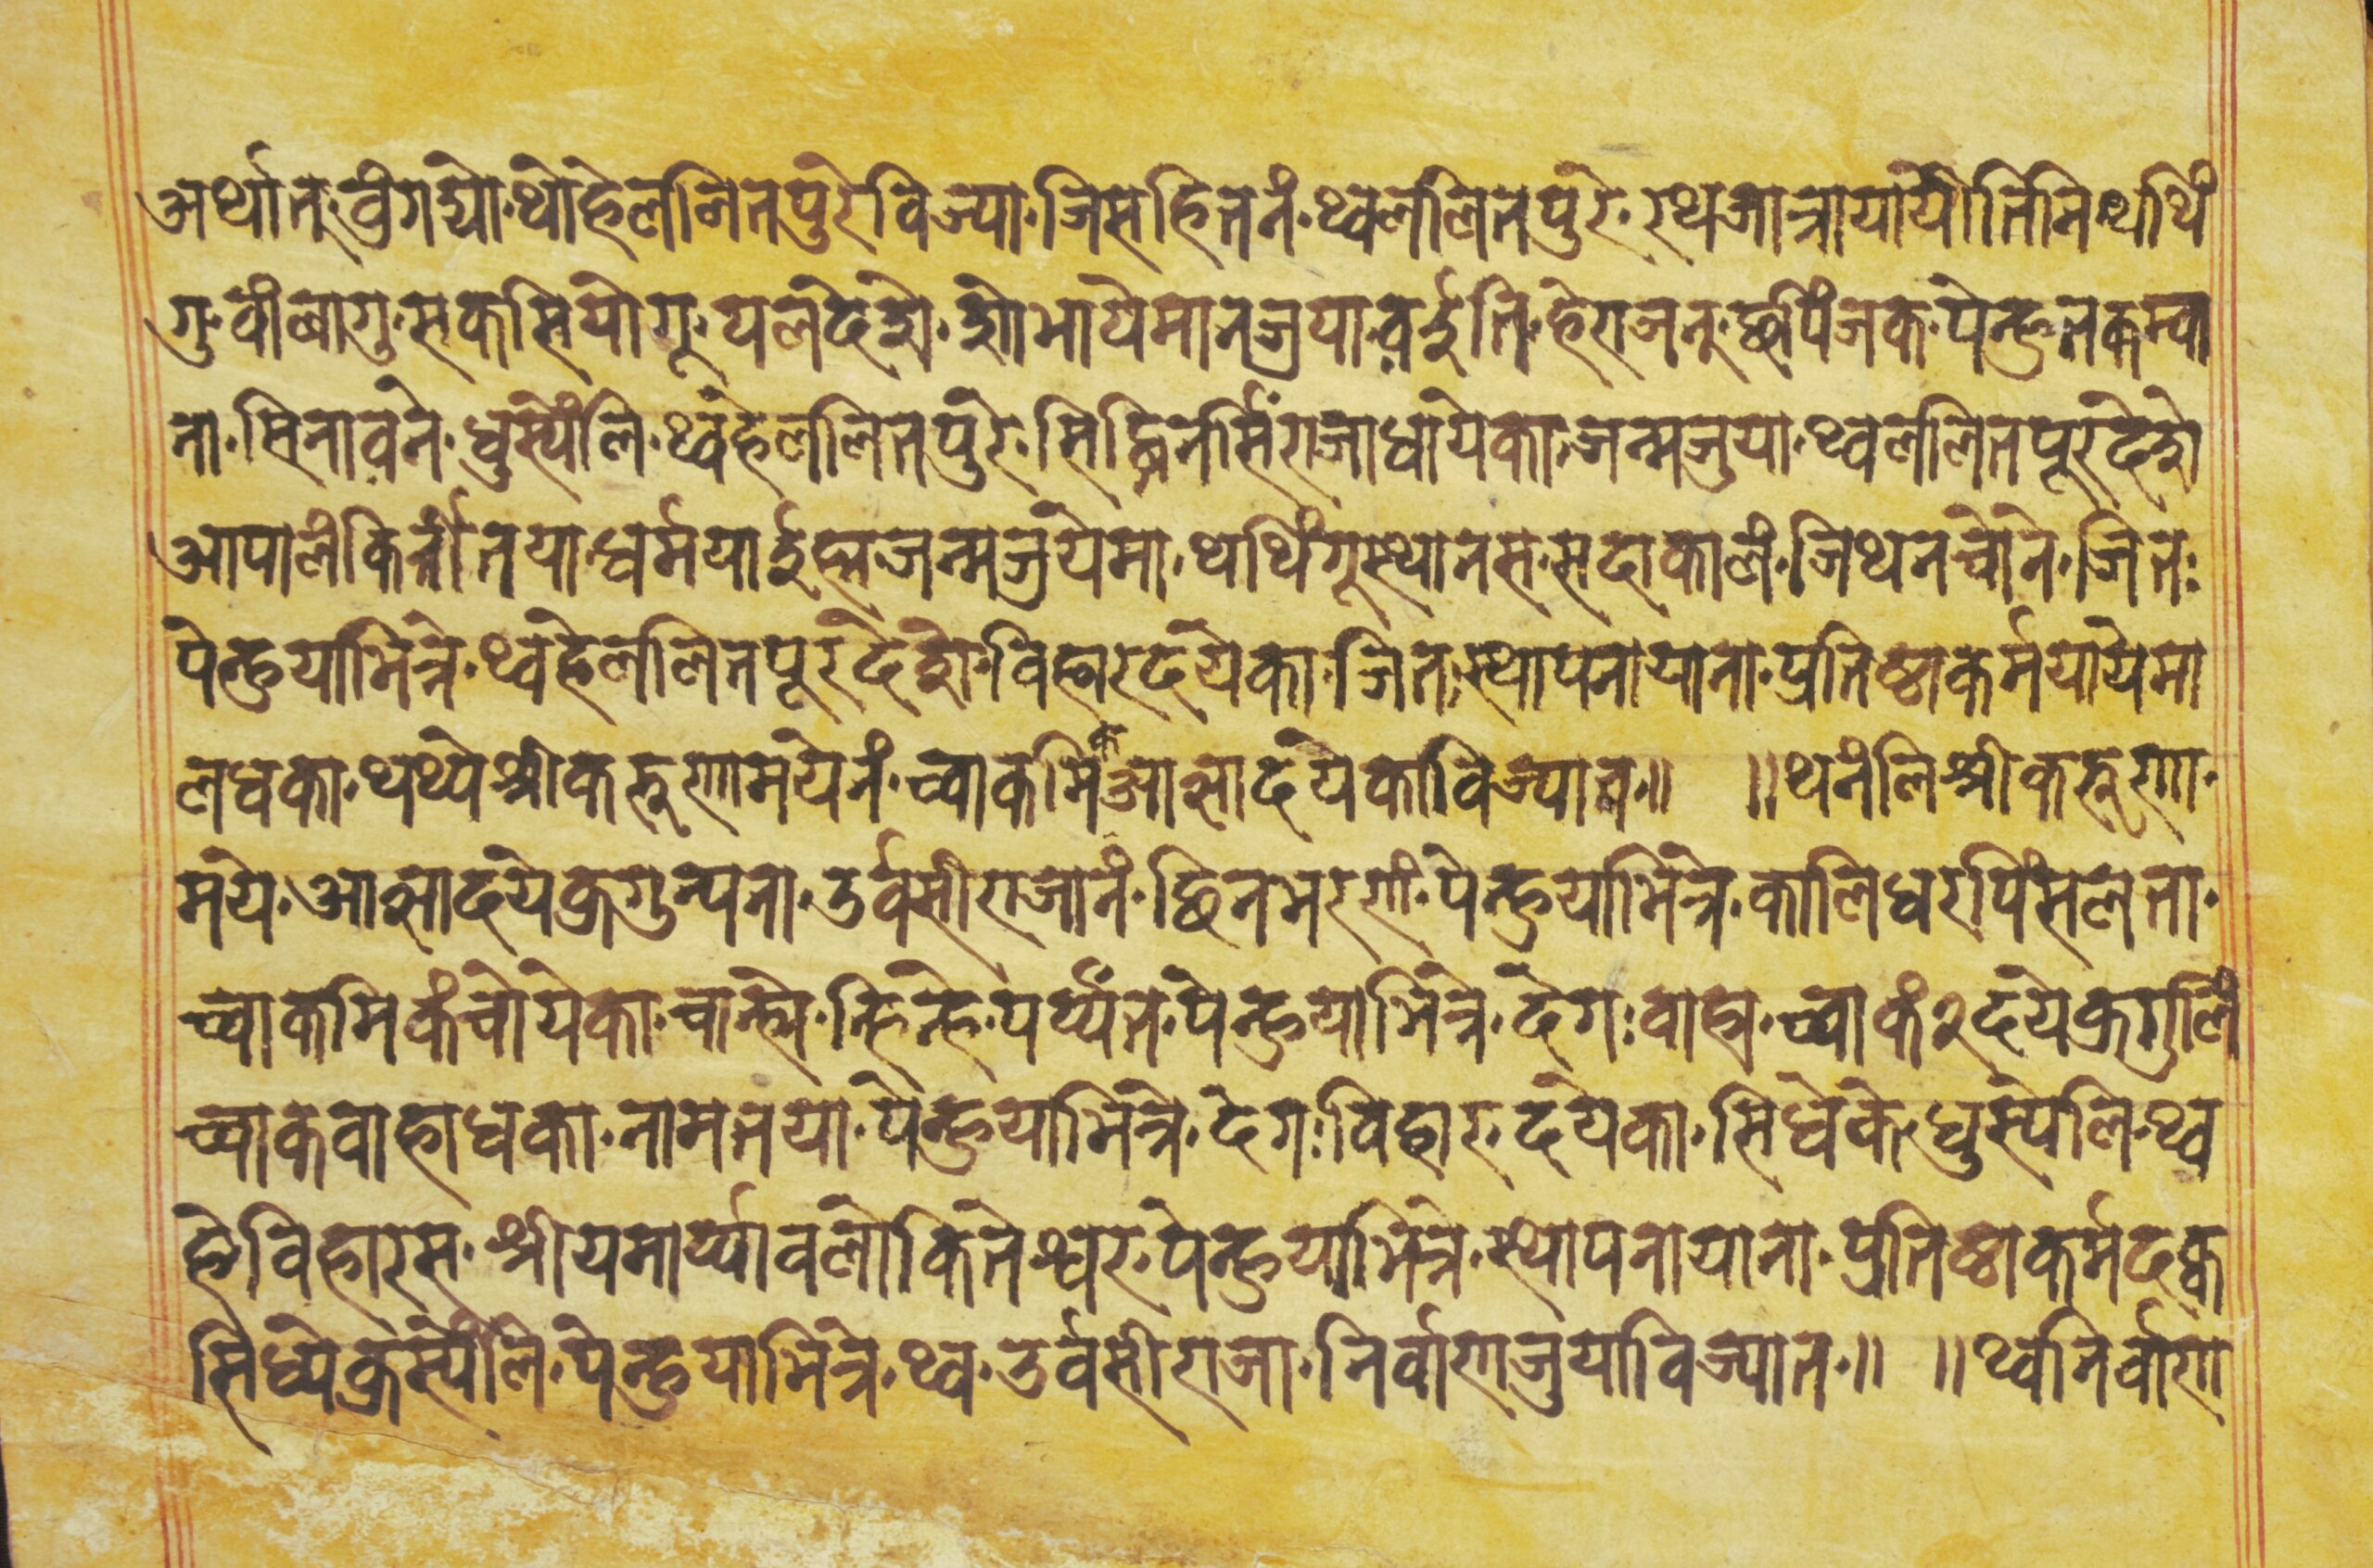 अर्थात्·वंगद्यो·थोहेललितपुरेविज्या·जिसहितनं·थ्वललितपुरे·रथजात्रायायेौतिनि·थथिं
गु·वांलागु·सकसियोगू·यलदेशे·शोभायेमानजुया·वईति·हेराजन्·छपिंजक·पेन्हुतकम्वा
ना·सिनावने·धुस्येंलि·थ्वंहेललितपुरे·सिद्धिनर्सिंराजाधायेका·जन्मजुया·थ्वललितपूरदेशे
आपालंकिर्त्तीतया·धर्मयाईह्मजन्मजुयेमा·थथिंगूस्थानस·सदाकालं·जिथनचोने·जितः
पेन्हुयाभित्रे·थ्वहेललितपूरदेशे·विहारदयेका·जित·स्थापनायाना·प्रतिष्ठाकर्मयायेमा
लधका·थथ्येश्रीकरुणामयेनं·च्वाकमिकआज्ञादयेकाविज्यात·॥ ॥थनंलिश्रीकरुणा·
मये·आज्ञादयेकुगुन्यना·उर्वसीराजानं·छिनभरणी·पेन्हुयाभित्रे·कालिधरपिंसलता·
च्वाकमिकंचोयेका·चान्हे·न्हिन्हे·पर्य्यंत·पेन्हुयाभित्रे·देगः·वाहा·च्वाकं२दयेकुगुलिं
च्वाकवाहाधका·नामतया·पेन्हुयाभित्रे·देगः·विहार·दयेका·सिधेके·धुस्येंलि·थ्व
हेविहारस·श्रीयमार्य्यावलोकितेश्वर·पेन्हुयाभित्रे·स्थापनायाना·प्रतिष्ठाकर्मदक्व
सिध्येकुस्येंलि·पेन्हुयाभित्रे·थ्व·उर्वसीराजा·निर्वाणजुयाविज्यात·॥ ॥थ्वनिर्वाण